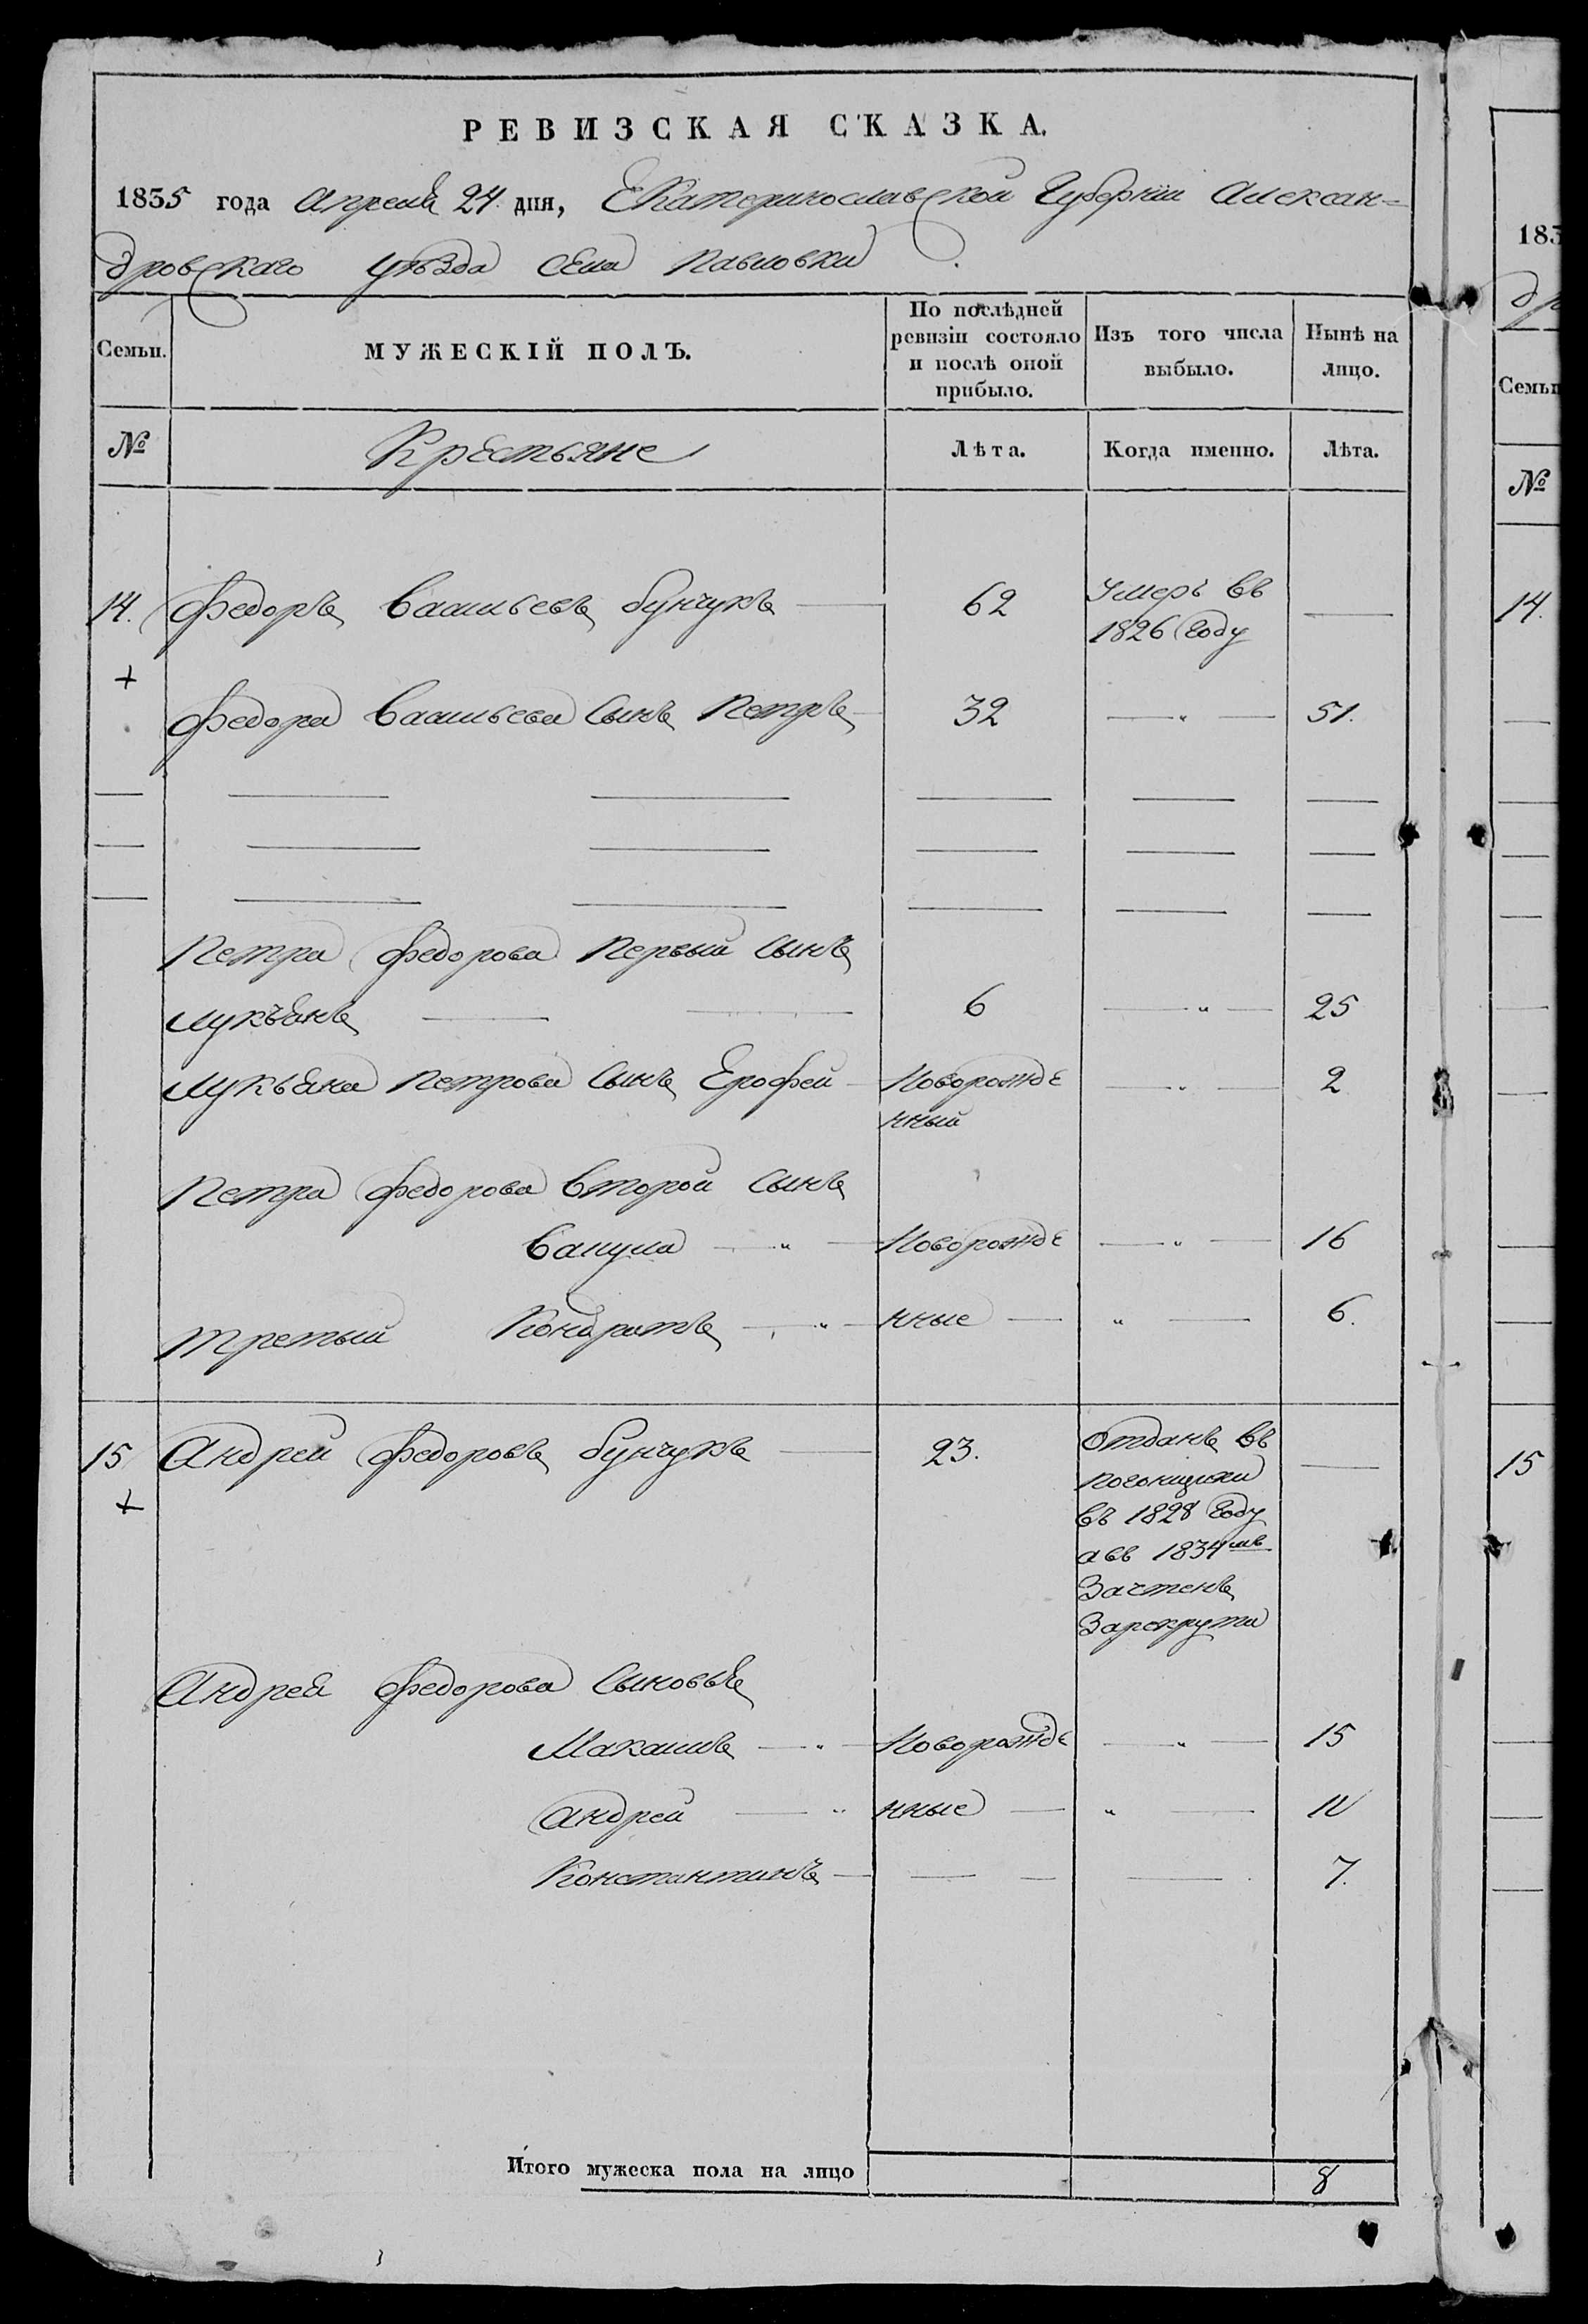 РЕВИЗСКАЯ СКАЗКА.
1835 года Апреля 24 дня, Екатеринославской Губерніи Алексан=
дровскаго уѣзда села Павловки
Семьи.
МУЖЕСКІЙ ПОЛЪ.
По послѣдней ревизіи состояло и послѣ оной прибыло.
Изъ того числа выбыло.
Нынѣ на лицо.
№ Крестьяне Лѣта. Когда именно. Лѣта.
14. Федоръ Васильевъ Бунчукъ 62 Умеръ въ
1826 году
+
Федора Васильева сынъ Петръ 32 " 51.
Петра Федорова первый сынъ
Лукьянъ 6 " 25
Лукьяна Петрова сынъ Ерофей Новорожде " 2
нный
Петра Федорова второй сынъ
Вакула " Новорожде " 16
третьій Кондратъ " нные " 6.
15 Андрей Федоровъ Бунчукъ 23. Отданъ въ
+ погонщики
въ 1828 году
а въ 1834мъ
Зачтенъ
Зарекрута
Андрея Федорова сыновья
Макаимъ " Новорожде " 15
Андрей " нные " 11
Константинъ 7.
Итого мужеска пола на лицо 8
183
др
Семьи
№
14.
15